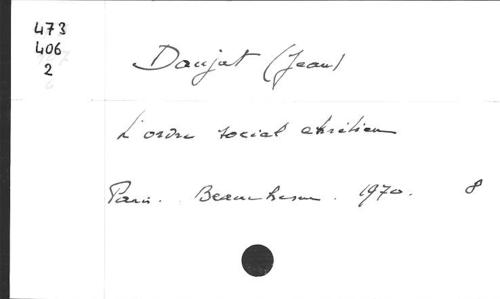 473
406
2
Daujat (Jean)
L'ordre social chrétien
Paris. Beauchesne. 1970. 8